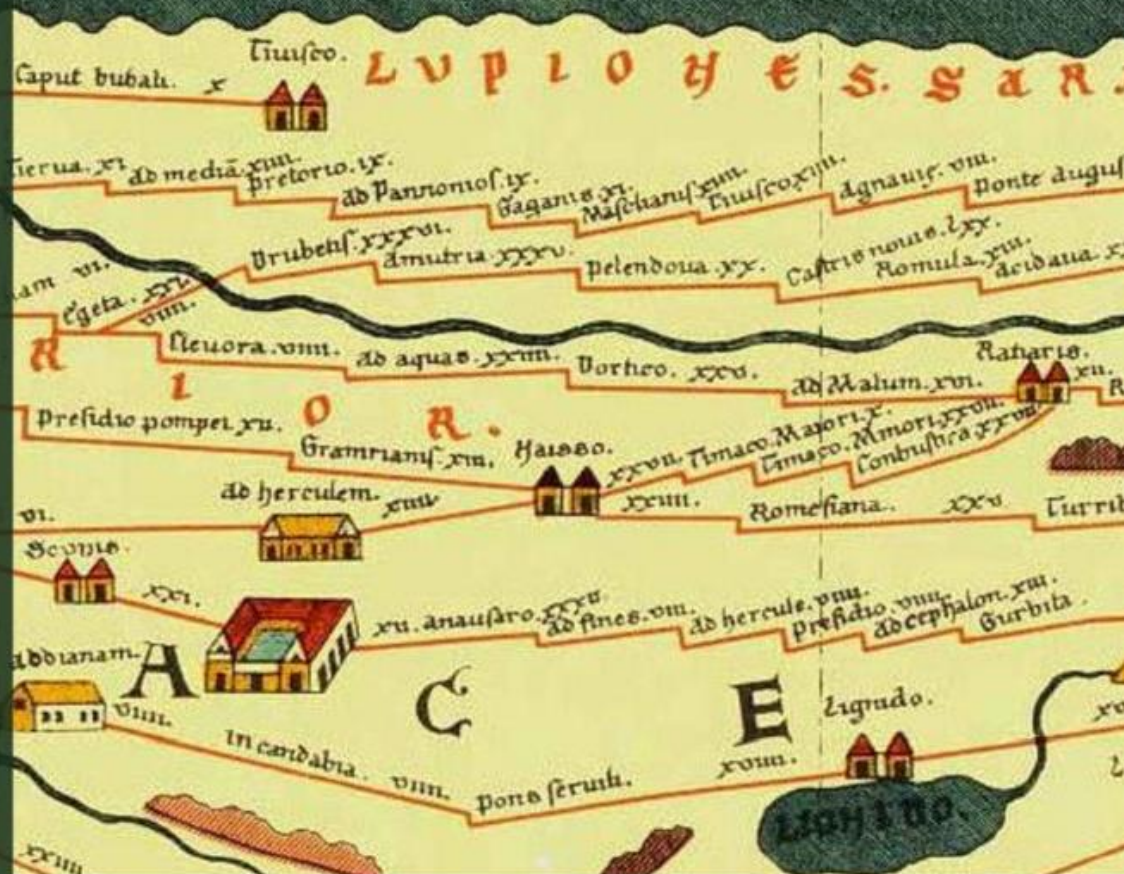 Tiuisco.
Caput bubali. x
LVPIONES. SaR.
Tierua. xi.
ad mediā. xiiii.
pretorio. ix.
ad Pannonios. ix.
Gaganis. xi.
Masclianis xiiii.
Tiuisco xiiii.
Agnauie. viii.
ponte augus
Drubetis. xxxvi.
amutria. xxxv.
pelendoua. xx.
Castris nouis. lxx.
Romula. xiii.
acidaua. x
nam vi.
egeta. xxi.
viiii.
Cleuora. viiii.
ad aquas. xxiiii.
Dortico. xxv.
ad Malum. xvi.
Ratiaris.
xii.
R
R I O R.
presidio pompei. xii.
Gramrianis. xiii.
Naisso.
xxvii.
Timaco. Maiori. x.
Timaco. Minori. xxvii.
Conbustica. xxvii.
ad herculem.
xiiii.
xxiiii.
Romesiana.
xxv.
Turrib
vi.
Scunis.
xxi.
xii. anausaro. xxxv.
ad fines. viii.
ad hercule. viiii.
presidio. viiii.
ad cephalon. xiii.
Gurbita.
addianam.
A C E
viiii.
In candabia. viiii.
pons seruili.
xviiii.
Lignido.
xv
LIGNIDO.
xxiiii